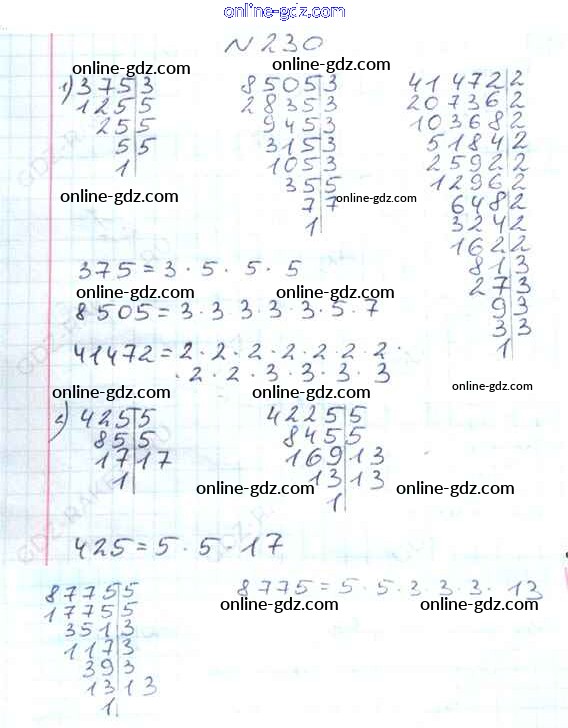 online-gdz.com
N 230
online-gdz.com
online-gdz.com
1) 375|3
125|5
25|5
5|5
1
8505|3
2835|3
945|3
315|3
105|3
35|5
7|7
1
41472|2
20736|2
10368|2
5184|2
2592|2
1296|2
648|2
324|2
162|2
81|3
27|3
9|3
3|3
1
online-gdz.com
online-gdz.com
375 = 3 · 5 · 5 · 5
online-gdz.com
online-gdz.com
8505 = 3 · 3 · 3 · 3 · 3 · 5 · 7
41472 = 2 · 2 · 2 · 2 · 2 · 2 · 2 ·
· 2 · 2 · 3 · 3 · 3 · 3
online-gdz.com
online-gdz.com
online-gdz.com
2) 425|5
85|5
17|17
1
4225|5
845|5
169|13
13|13
1
online-gdz.com
online-gdz.com
425 = 5 · 5 · 17
8775|5
1775|5
351|3
117|3
39|3
13|13
1
8775 = 5 · 5 · 3 · 3 · 3 · 13
online-gdz.com
online-gdz.com